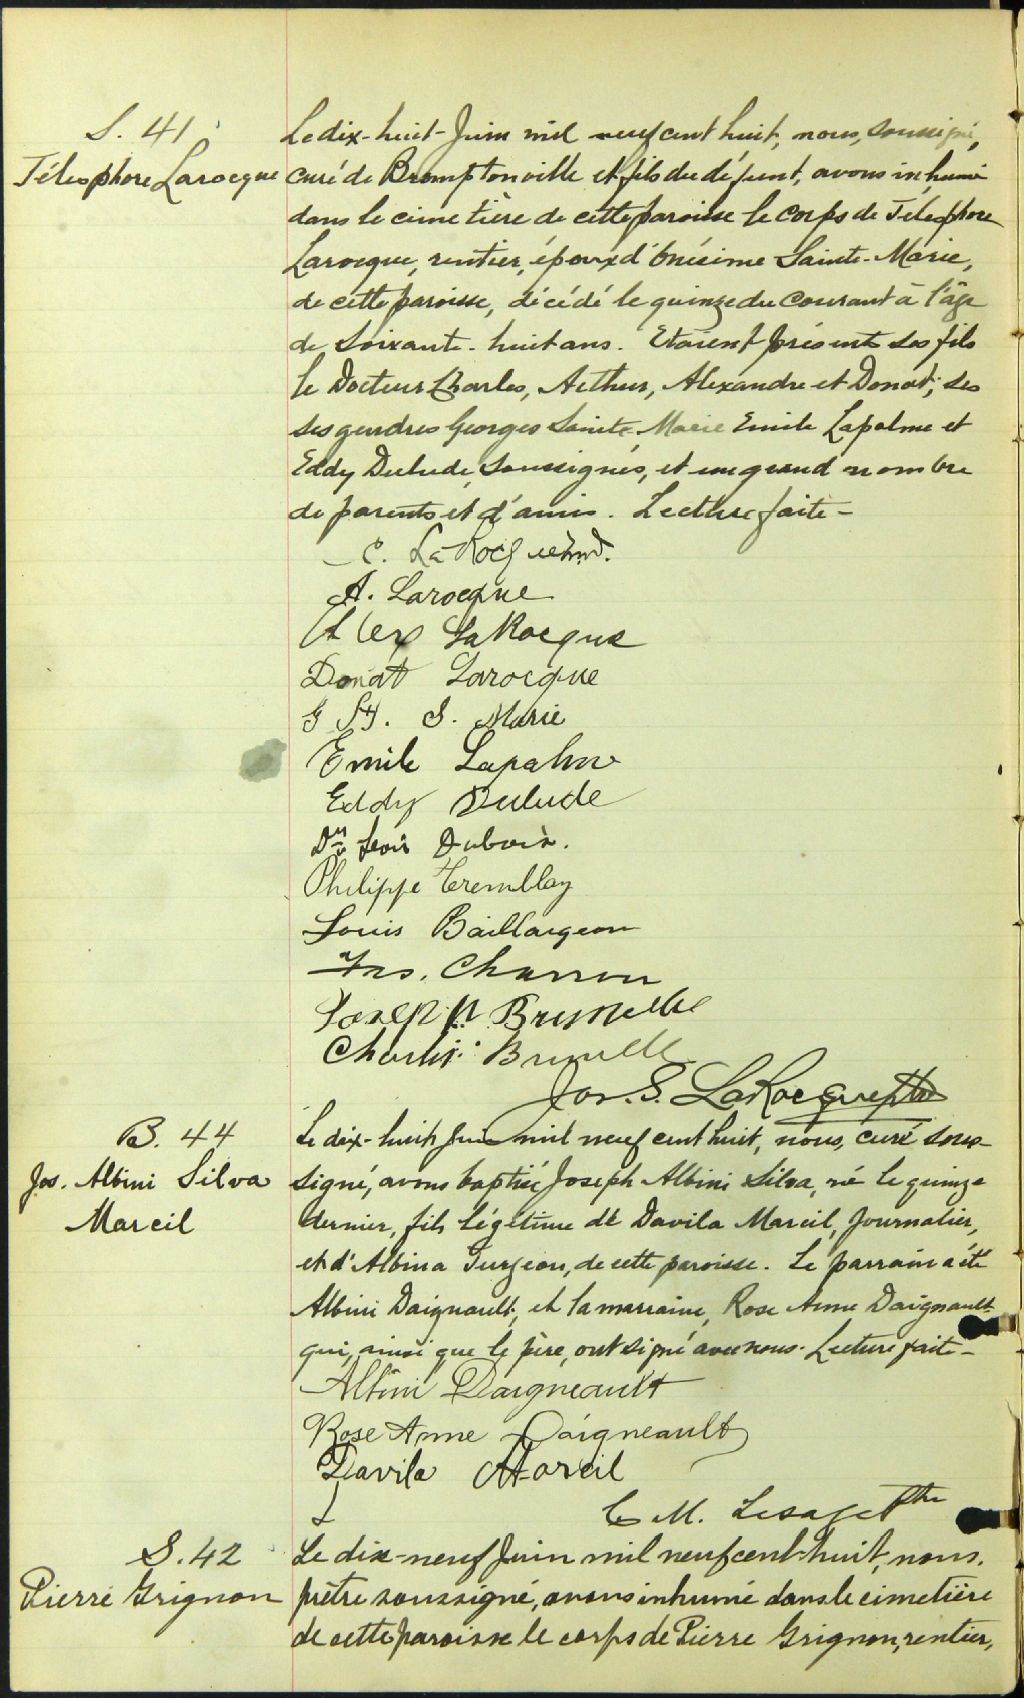 S. 41
Télesphore Larocque
Le dix-huit Juin mil neuf cent huit, nous, soussigné,
curé de Bromptonville et fils du défunt, avons inhumé
dans le cimetière de cette paroisse le corps de Télesphore
Larocque, rentier, époux d'Onésime Sainte-Marie,
de cette paroisse, décédé le quinze du courant à l'âge
de soixante-huit ans. Etaient présents ses fils
le Docteur Charles, Arthur, Alexandre et Donat; ses
ses gendres Georges Sainte Marie Emile Lapalme et
Eddy Dulude, soussignés, et un grand nombre
de parents et d'amis. Lecture faite -
C. LaRocque M.D.
A. Larocque
Alex LaRocque
Donat Larocque
G S. Marie
Emile Lapalme
Eddy Dulude
Dubois.
Philippe Tremblay
Louis Baillargeon
Charron
Joseph Brunelle
Charles Brunelle
Jos. S. LaRocque Ptre
B. 44
Jos. Albini Silva
Marcil
Le dix-huit Juin mil neuf cent huit, nous, curé sous-
signé, avons baptisé Joseph Albini Silva, né le quinze
dernier, fils légitime de Davila Marcil, journalier,
et d'Albina Turgeon, de cette paroisse. Le parrain a été
Albini Daignault, et la marraine, Rose Anne Daignault
qui, ainsi que le père, ont signé avec nous. Lecture faite -
Albini Daigneault
Rose Anne Daigneault
Davila Marcil
C M. Lesage Ptre
S. 42
Pierre Grignon
Le dix-neuf Juin mil neuf cent-huit, nous,
prêtre soussigné, avons inhumé dans le cimetière
de cette paroisse le corps de Pierre Grignon, rentier,